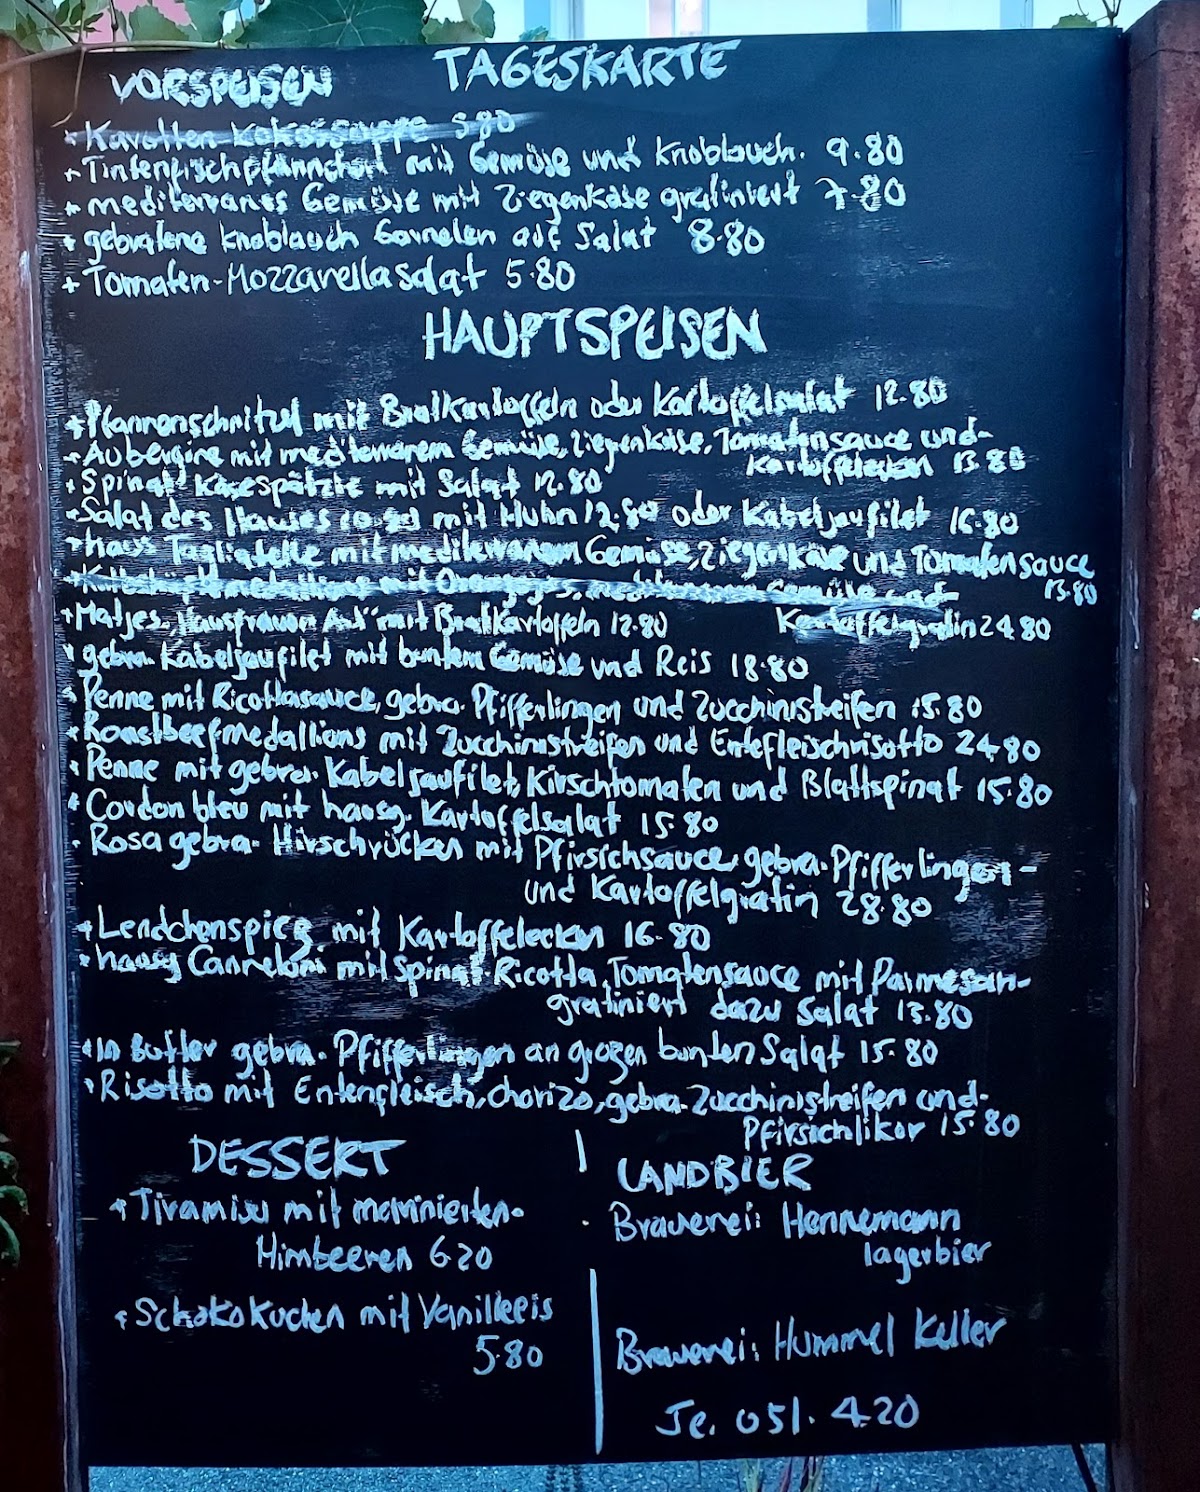 TAGESKARTE
VORSPEISEN
+ Karotten Kokossuppe 5.80
+ Tintenfischpfännchen mit Gemüse und Knoblauch. 9.80
+ mediterranes Gemüse mit Ziegenkäse gratiniert 7.80
+ gebratene Knoblauch Garnelen auf Salat 8.80
+ Tomaten-Mozzarellasalat 5.80
HAUPTSPEISEN
+ Pfannenschnitzel mit Bratkartoffeln oder Kartoffelsalat 12.80
+ Aubergine mit mediterranem Gemüse, Ziegenkäse, Tomatensauce und-
Kartoffelecken 13.80
+ Spinat Käsespätzle mit Salat 12.80
+ Salat des Hauses mit Huhn 12.80 oder Kabeljaufilet 16.80
+ haus Tagliatelle mit mediterranem Gemüse, Ziegenkäse und Tomatensauce
13.80
mit mediterranem Gemüse und
Kartoffelgratin 24.80
+ Matjes "Hausfrauen Art" mit Bratkartoffeln 12.80
+ gebra. Kabeljaufilet mit buntem Gemüse und Reis 18.80
+ Penne mit Ricottasauce, gebra. Pfifferlingen und Zucchinistreifen 15.80
+ Roastbeefmedallions mit Zucchinistreifen und Entefleischrisotto 24.80
+ Penne mit gebra. Kabeljaufilet, Kirschtomaten und Blattspinat 15.80
+ Cordon bleu mit hausg. Kartoffelsalat 15.80
. Rosa gebra. Hirschrücken mit Pfirsichsauce, gebra. Pfifferlingen-
und Kartoffelgratin 28.80
+ Lendchenspieß mit Kartoffelecken 16.80
+ hausg Canneloni mit Spinat-Ricotta, Tomatensauce mit Parmesan-
gratiniert dazu Salat 13.80
+ In Butter gebra. Pfifferlingen an großen bunten Salat 15.80
+ Risotto mit Entenfleisch, chorizo, gebra. Zucchinistreifen und-
Pfirsichlikör 15.80
DESSERT
+ Tiramisu mit marinierten-
Himbeeren 6.20
+ Schokokuchen mit Vanilleeis
5.80
LANDBIER
. Brauerei: Hennemann
lagerbier
Brauerei: Hummel Keller
Je. 0,5l. 4.20